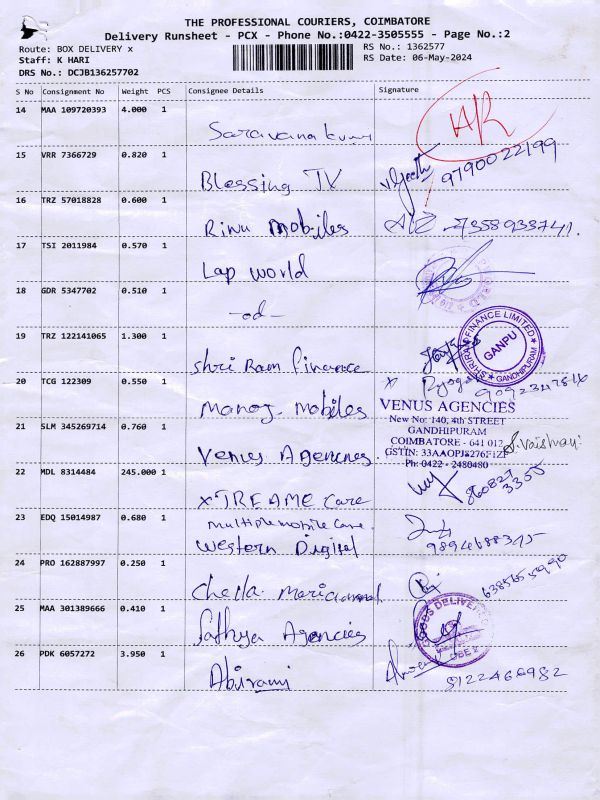 THE PROFESSIONAL COURIERS, COIMBATORE
Delivery Runsheet - PCX - Phone No.:0422-3505555 - Page No.:2
Route: BOX DELIVERY x
RS No.: 1362577
Staff: K HARI
RS Date: 06-May-2024
DRS No.: DCJB136257702
S No Consignment No Weight PCS Consignee Details Signature
14 MAA 109720393 4.000 1
Saravanakumar
15 VRR 7366729 0.820 1
Blessing TV 9790022199
16 TRZ 57018828 0.600 1
Rinu mobiles 7358933741.
17 TSI 2011984 0.570 1
Lap world
18 GDR 5347702 0.510 1
-od-
19 TRZ 122141065 1.300 1
Shri Ram finance
SHRIRAM FINANCE LIMITED
GANPU
GANDHIPURAM
20 TCG 122309 0.550 1
Manoj mobiles
VENUS AGENCIES
New No: 140, 4th STREET
GANDHIPURAM
21 SLM 345269714 0.760 1
COIMBATORE - 641 012.
S.Vaishnavi
GSTIN: 33AAOPJ8276F1ZF
Venus Agencies.
Ph: 0422 - 2480480
22 MDL 8314484 245.000 1
XTREAME Care
860827
3355
23 EDQ 15014987 0.680 1
multiplemobile Care.
Western Digital 9894688345
24 PRO 162887997 0.250 1
Chella mariammal
25 MAA 301389666 0.410 1
GOODS DELIVERED
Sathya Agencies
26 PDK 6057272 3.950 1
Abirami 8122466982